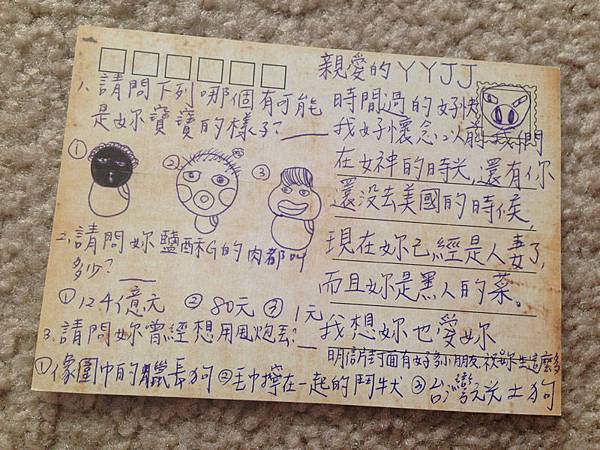 1、請問下列哪個有可能
是妳寶寶的樣子?
① ② ③
2、請問妳鹽酥G的肉都叫
多少?
①124億元 ②80元 ③1元
3、請問妳曾經想用甩炮丟?
①像圖中的臘長狗 ②毛巾擰在一起的鬥牛犬 ③台灣土狗
親愛的YYJJ
時間過的好快
我好懷念以前我們
在女神的時光,還有你
還沒去美國的時候,
現在妳已經是人妻了,
而且妳是黑人的菜。
我想妳也愛妳
明信片封面有好多小朋友 被妳生這麼多